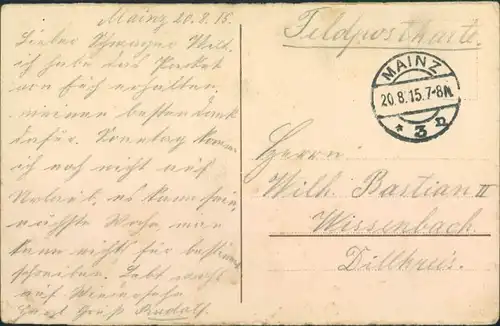 Mainz 20.8.15.
Lieber Schwager Wilh.
ich habe das Packet
von Euch erhalten.
meinen besten Dank
dafür. Sonntag komme
ich noch nicht auf
Urlaub, es kann sein
nächste Woche man
kann nichts für bestimmt
schreiben. Lebt wohl
auf Wiedersehn
Gruß Rudolf
Feldpostkarte.
MAINZ
20.8.15.7-8N.
* 3 n
Herrn
Wilh. Bastian II
Wissenbach
Dillkreis.